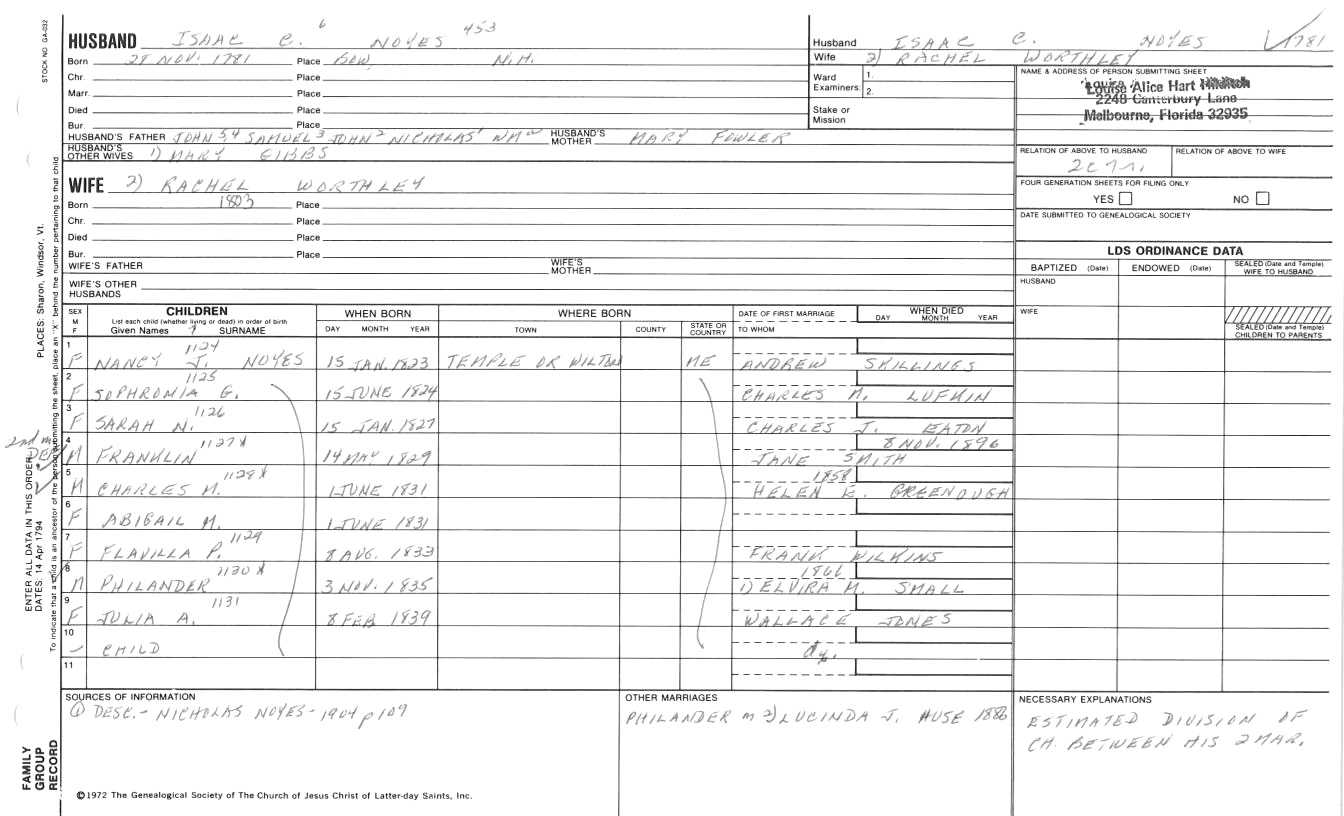 STOCK NO GA-032
PLACES: Sharon, Windsor, Vt.
ENTER ALL DATA IN THIS ORDER
DATES: 14 Apr 1794
To indicate that a child is an ancestor of the person submitting the sheet, place an "X" behind the number pertaining to that child
FAMILY GROUP RECORD
HUSBAND ISAAC C. 6 NOYES 453
Born 28 NOV. 1781 Place BOW, N.H.
Chr. Place
Marr. Place
Died Place
Bur. Place
HUSBAND'S FATHER JOHN 5,4 SAMUEL 3 JOHN 2 NICHOLAS 1 WM HUSBAND'S MOTHER MARY FOWLER
HUSBAND'S OTHER WIVES 1) MARY GIBBS
WIFE 2) RACHEL WORTHLEY
Born 1803 Place
Chr. Place
Died Place
Bur. Place
WIFE'S FATHER WIFE'S MOTHER
WIFE'S OTHER HUSBANDS
Husband ISAAC C. NOYES 1781
Wife 2) RACHEL WORTHLEY
Ward Examiners: 1. 2.
Stake or Mission
NAME & ADDRESS OF PERSON SUBMITTING SHEET
Louise Alice Hart
2248 Canterbury Lane
Melbourne, Florida 32935
RELATION OF ABOVE TO HUSBAND RELATION OF ABOVE TO WIFE
FOUR GENERATION SHEETS FOR FILING ONLY
YES NO
DATE SUBMITTED TO GENEALOGICAL SOCIETY
LDS ORDINANCE DATA
BAPTIZED (Date) ENDOWED (Date) SEALED (Date and Temple) WIFE TO HUSBAND
HUSBAND
WIFE
SEALED (Date and Temple) CHILDREN TO PARENTS
SEX M F CHILDREN WHEN BORN WHERE BORN DATE OF FIRST MARRIAGE WHEN DIED
List each child (whether living or dead) in order of birth
Given Names 7 SURNAME DAY MONTH YEAR TOWN COUNTY STATE OR COUNTRY TO WHOM DAY MONTH YEAR
1124
1 F NANCY J. NOYES 15 JAN. 1823 TEMPLE OR WILTON ME ANDREW SKILLINGS
1125
2 F SOPHRONIA G. 15 JUNE 1824 CHARLES M. LUFKIN
1126
3 F SARAH N. 15 JAN. 1827 CHARLES J. EATON
2nd m 1127X 8 NOV. 1896
4 M FRANKLIN 14 MAY 1829 JANE SMITH
1128X 1858
5 M CHARLES M. 1 JUNE 1831 HELEN E. GREENOUGH
6 F ABIGAIL M. 1 JUNE 1831
1129
7 F FLAVILLA P. 8 AUG. 1833 FRANK WILKINS
1130X 1866
8 M PHILANDER 3 NOV. 1835 1) ELVIRA M. SMALL
1131
9 F JULIA A. 8 FEB 1839 WALLACE JONES
10 - CHILD dy.
11
SOURCES OF INFORMATION
① DESC.- NICHOLAS NOYES - 1904 p 109
OTHER MARRIAGES
PHILANDER m 2) LUCINDA J. HUSE 1886
NECESSARY EXPLANATIONS
ESTIMATED DIVISION OF
CH. BETWEEN HIS 2 MAR.
©1972 The Genealogical Society of The Church of Jesus Christ of Latter-day Saints, Inc.